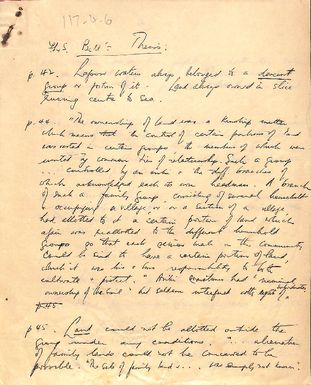 117-13-6
F.L.S. Bell's Thesis.
p.42. Lagoon waters always belonged to a descent
group or portion of it. Land always owned in slice
running centre to sea.
p.44. "The ownership of land was a kinship matter
which means that the control of certain portions of land
was vested in certain groups the members of which were
united by common ties of relationship. Such a group
... controlled by an and the diff. branches of
which acknowledged each its own headman. A branch
of such a family group, consisting of several households
occupying a village, or a section of a village,
had allotted to it a certain portion of land which
again was reallotted to the different household
groups so that each person in the community
could be said to have a certain portion of land,
which it was his own responsibility to both
cultivate protect." had "nominal
ownership of the land" but seldom interfered with rights
p.45
p.45. Land could not be allotted outside the
group under any conditions. "... alienation
of family lands could not be conceived to be
possible. "The sale of family lands ... was simply not known".